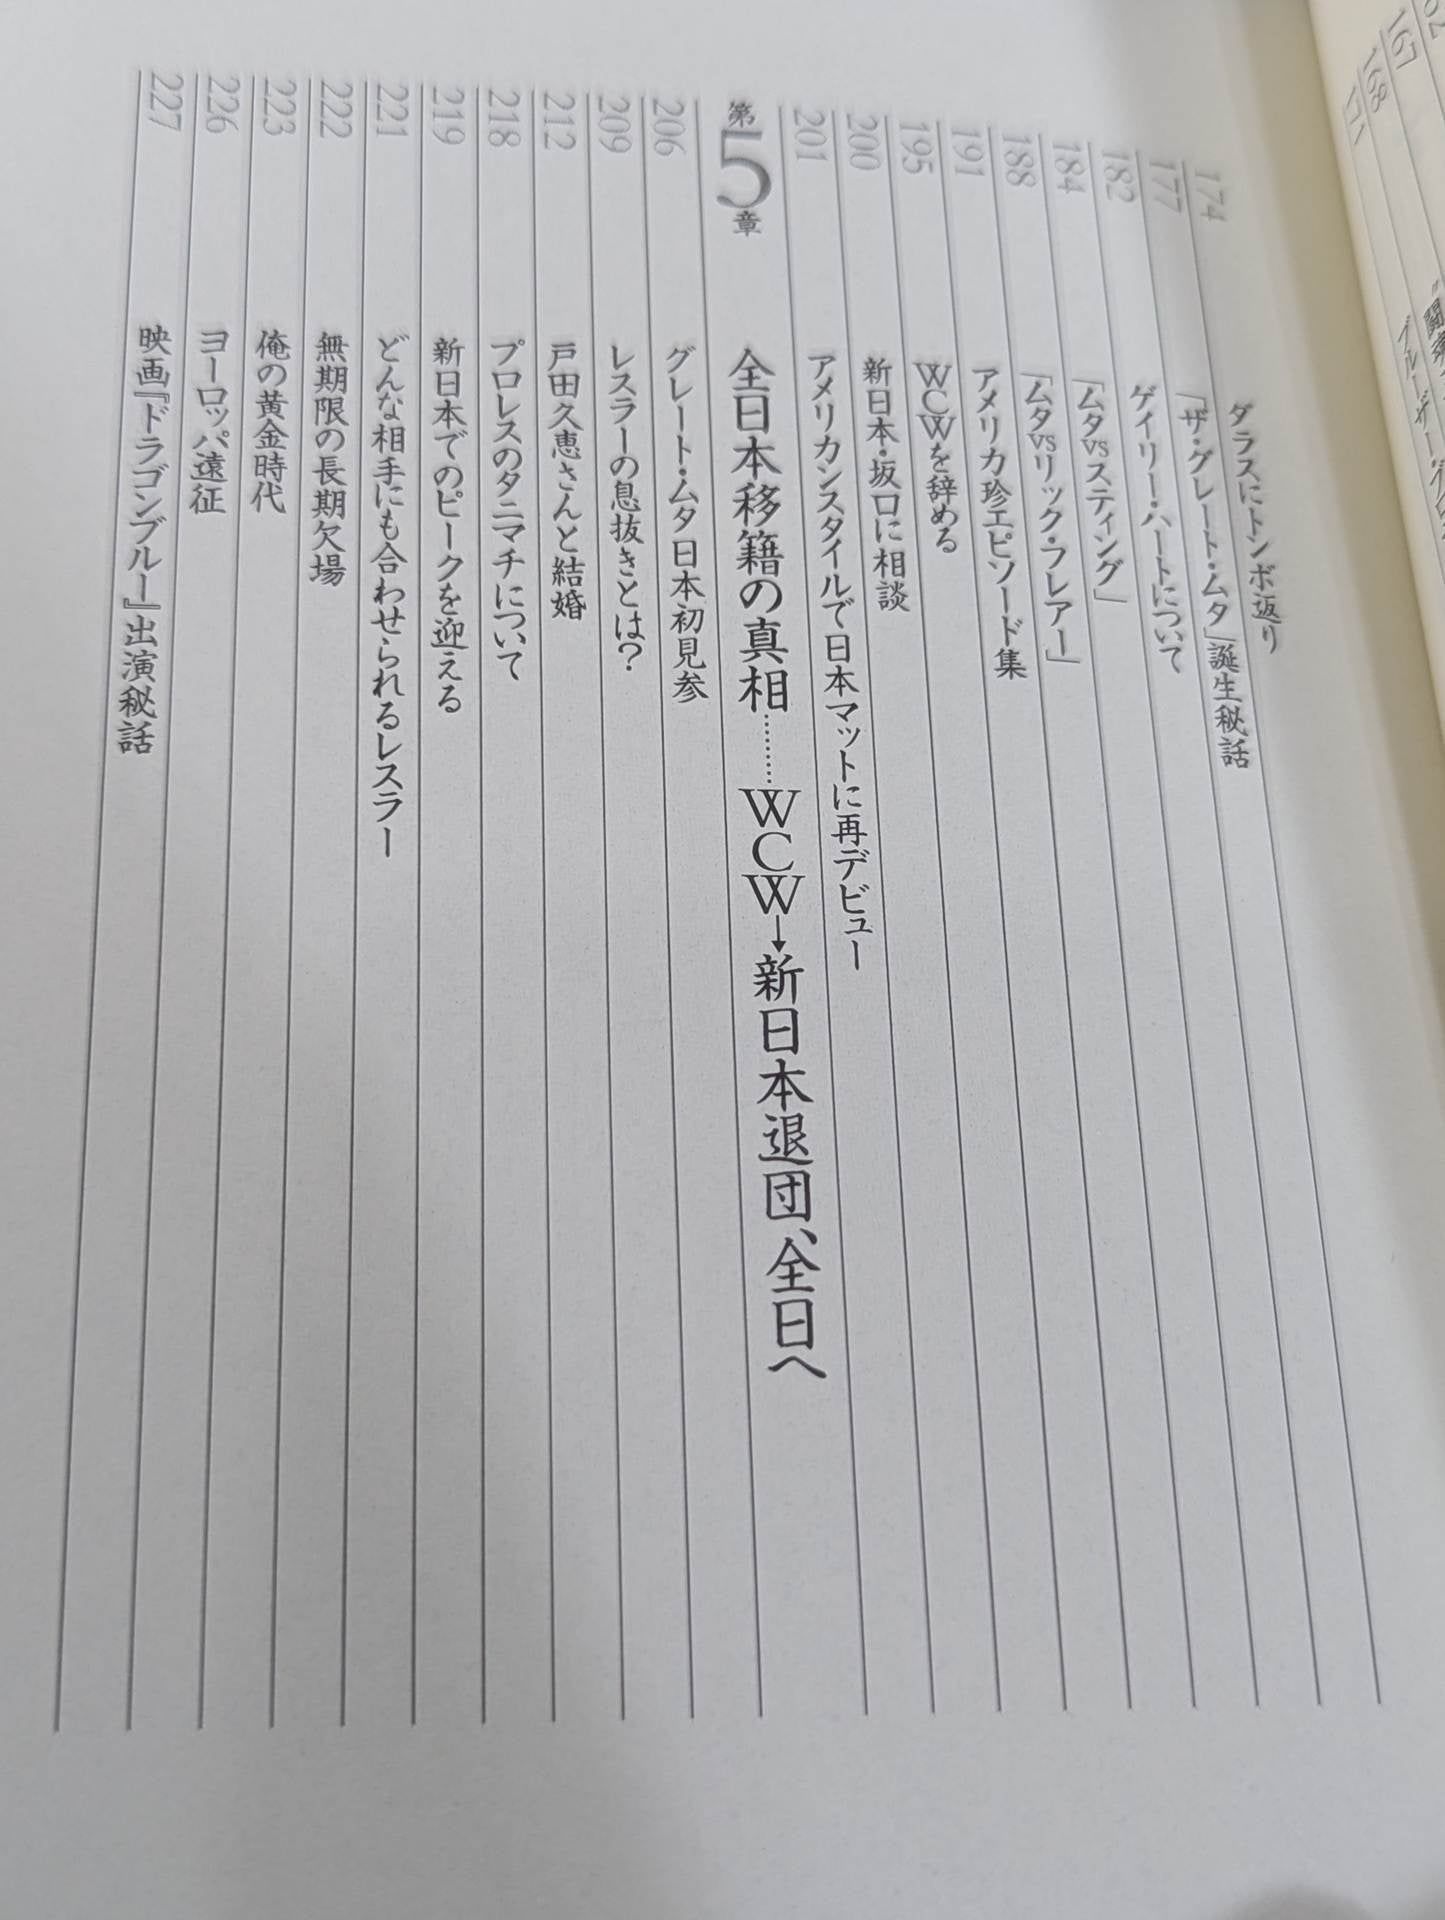 167
168
171
ブルーザー・
174 ダラスにトンボ返り
177 「ザ・グレート・ムタ」誕生秘話
182 ゲイリー・ハートについて
184 「ムタvsスティング」
188 「ムタvsリック・フレアー」
191 アメリカ珍エピソード集
195 WCWを辞める
200 新日本・坂口に相談
201 アメリカンスタイルで日本マットに再デビュー
第5章 全日本移籍の真相……WCW→新日本退団、全日へ
206 グレート・ムタ日本初見参
209 レスラーの息抜きとは?
212 戸田久恵さんと結婚
218 プロレスのタニマチについて
219 新日本でのピークを迎える
221 どんな相手にも合わせられるレスラー
222 無期限の長期欠場
223 俺の黄金時代
226 ヨーロッパ遠征
227 映画『ドラゴンブルー』出演秘話